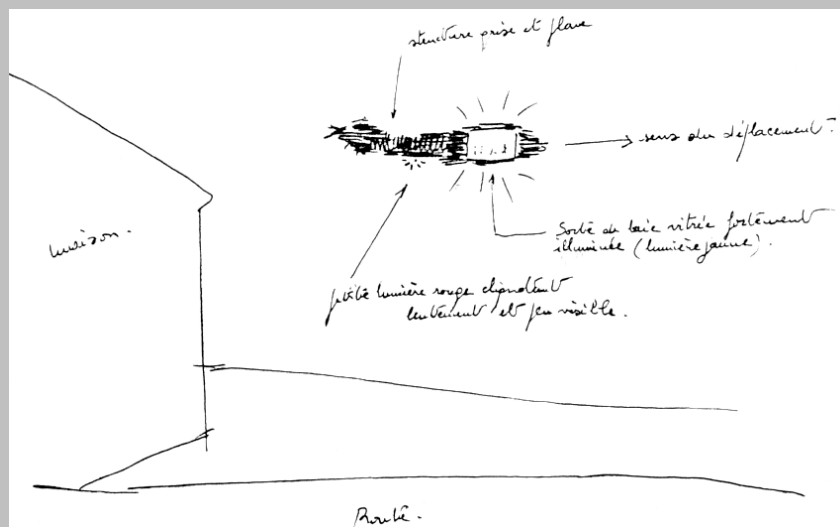 structure grise et floue
sens du déplacement.
maison.
Sorte de baie vitrée fortement
illuminée (lumière jaune).
petite lumière rouge clignotant
lentement et peu visible.
Route.